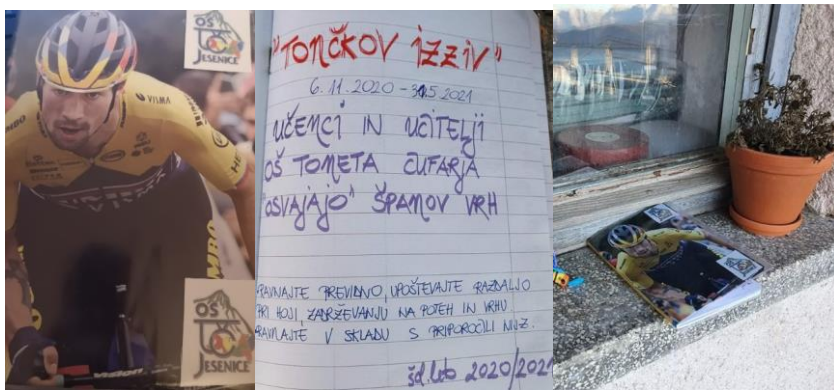 OŠ
TČ
JESENICE
VISMA
OŠ
TČ
JESENICE
"TONČKOV IZZIV"
6. 11. 2020 - 31.5 2021
UČENCI IN UČITELJI
OŠ TONETA ČUFARJA
"OSVAJAJO" ŠPANOV VRH
RAVNAJTE PREVIDNO, UPOŠTEVAJTE RAZDALJO
PRI HOJI, ZADRŽEVANJU NA POTEH IN VRHU
RAVNAJTE V SKLADU S PRIPOROČILI NIJZ.
šol. leto 2020/2021